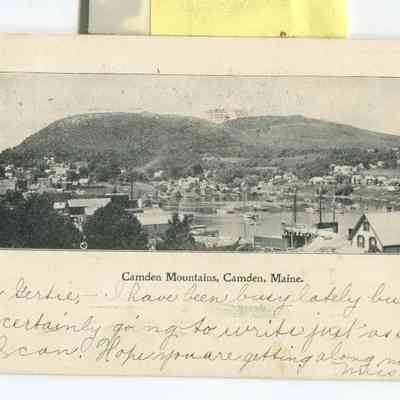 Camden Mountains, Camden, Maine.
Gertie, - I have been busy lately bu
certainly going to write just as
I can. Hope you are getting along